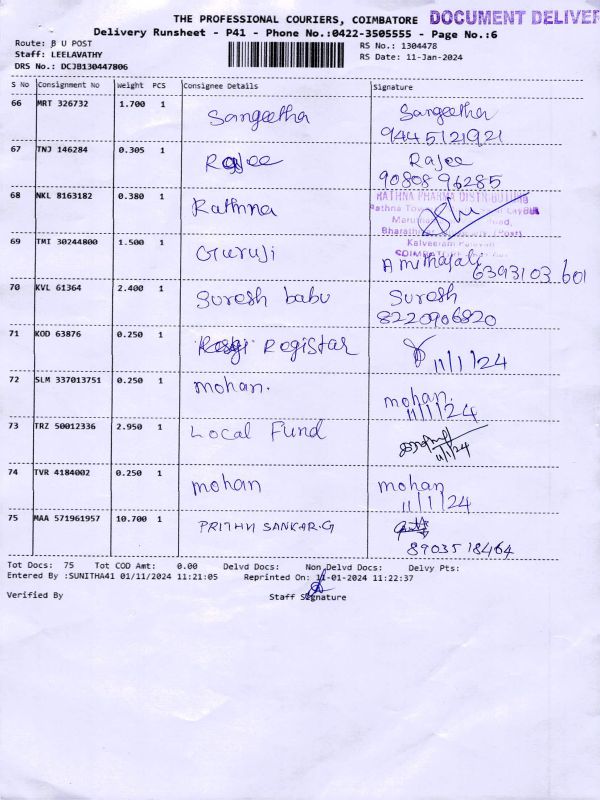 THE PROFESSIONAL COURIERS, COIMBATORE DOCUMENT DELIVER
Delivery Runsheet - P41 - Phone No.:0422-3505555 - Page No.:6
Route: B U POST
Staff: LEELAVATHY
DRS No.: DCJB130447806
RS No.: 1304478
RS Date: 11-Jan-2024
S No Consignment No Weight PCS Consignee Details Signature
66 MRT 326732 1.700 1 Sangeetha Sangeetha
9445121921
67 TNJ 146284 0.305 1 Rajee Rajee
90808 96285
68 NKL 8163182 0.380 1 Rathna
RATHNA PHARMA DISTRIBUTORS
69 TMI 30244800 1.500 1 Guruji
6393103 601
70 KVL 61364 2.400 1 Suresh babu Suresh
8220906820
71 KOD 63876 0.250 1 Registar 11/1/24
72 SLM 337013751 0.250 1 mohan. mohan.
11/1/24
73 TRZ 50012336 2.950 1 Local Fund
11/1/24
74 TVR 4184002 0.250 1 mohan mohan
11/1/24
75 MAA 571961957 10.700 1 PRITHVI SANKAR.G
8903518464
Tot Docs: 75 Tot COD Amt: 0.00 Delvd Docs: Non Delvd Docs: Delvy Pts:
Entered By :SUNITHA41 01/11/2024 11:21:05 Reprinted On: 11-01-2024 11:22:37
Verified By Staff Signature